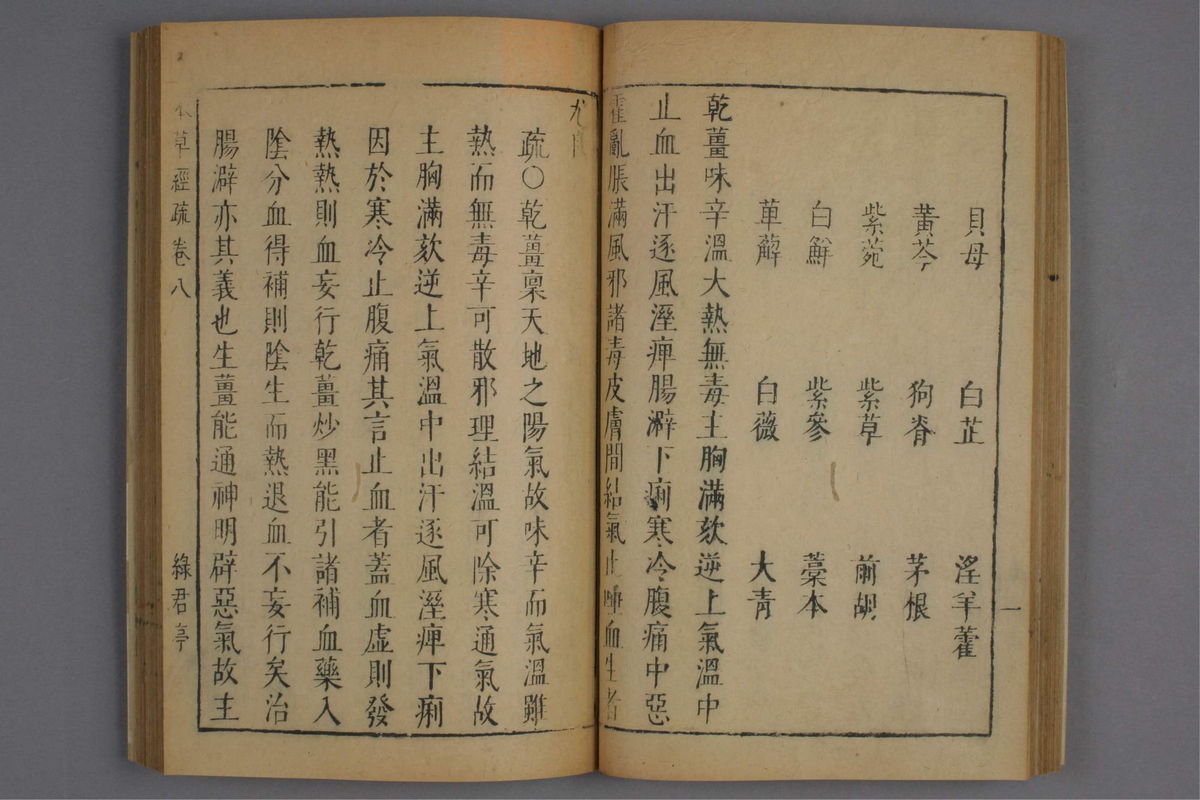 貝母 白芷 淫羊藿
黃芩 狗脊 茅根
紫菀 紫草 前胡
白鮮 紫參 藁本
萆薢 白薇 大青
乾薑味辛溫大熱無毒主胸滿欬逆上氣溫中
止血出汗逐風溼痺腸澼下痢寒冷腹痛中惡
霍亂脹滿風邪諸毒皮膚間結氣止唾血生者
尤良
疏〇乾薑稟天地之陽氣故味辛而氣溫雖
熱而無毒辛可散邪理結溫可除寒通氣故
主胸滿欬逆上氣溫中出汗逐風溼痺下痢
因於寒冷止腹痛其言止血者蓋血虛則發
熱熱則血妄行乾薑炒黑能引諸補血藥入
陰分血得補則陰生而熱退血不妄行矣治
腸澼亦其義也生薑能通神明辟惡氣故主
本草經疏 卷八 綠君亭
一